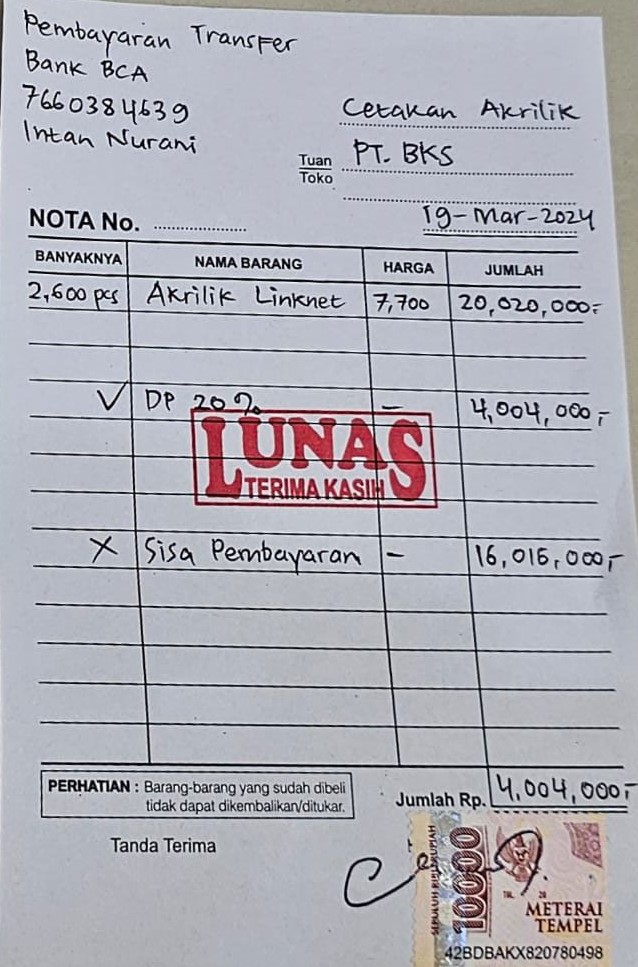 Pembayaran Transfer
Bank BCA
7660384639
Intan Nurani
Cetakan Akrilik
Tuan
Toko
PT. BKS
NOTA No. ....................
19-Mar-2024
BANYAKNYA NAMA BARANG HARGA JUMLAH
2,600 pcs Akrilik Linknet 7,700 20,020,000:-
✓ DP 20% – 4,004,000,-
LUNAS
TERIMA KASIH
X Sisa Pembayaran – 16,016,000,-
PERHATIAN : Barang-barang yang sudah dibeli
tidak dapat dikembalikan/ditukar.
Jumlah Rp. 4,004,000,-
Tanda Terima
SEPULUH RIBU RUPIAH
10000
TGL. 20
METERAI
TEMPEL
42BDBAKX820780498